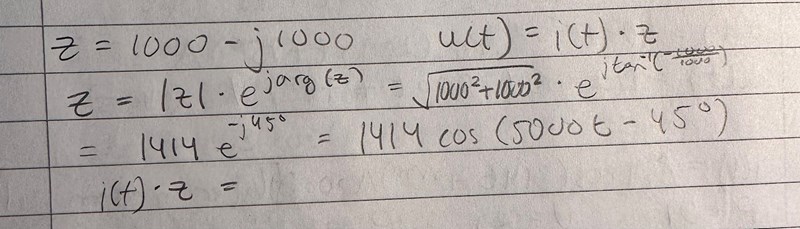 z = 1000 - j1000 u(t) = i(t) · z
z = |z| · e^{j arg(z)} = √(1000² + 1000²) · e^{j tan⁻¹(-1000/1000)}
= 1414 e^{-j45°} = 1414 cos(5000t - 45°)
i(t) · z =